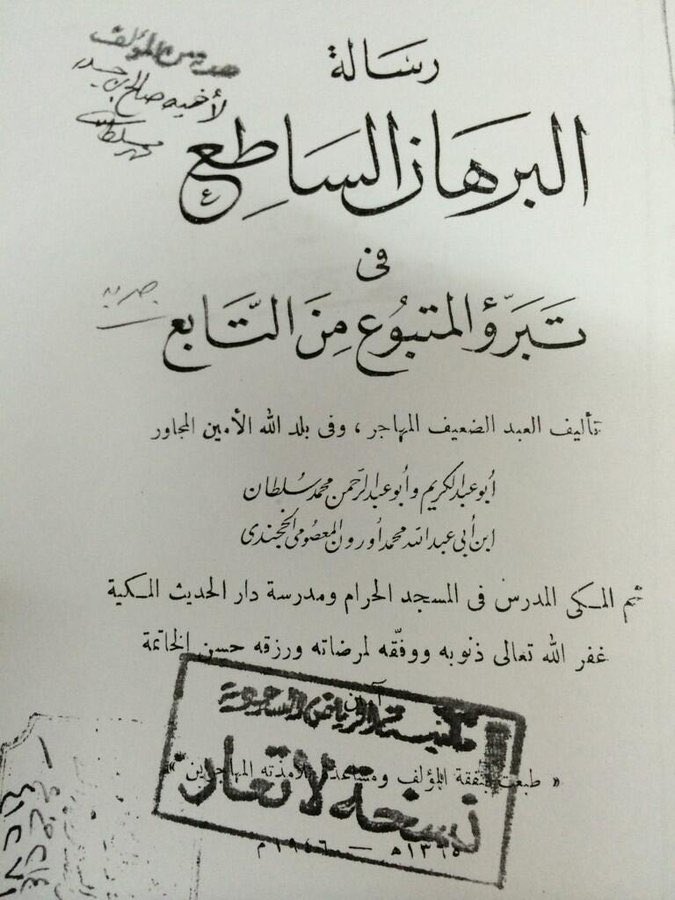 هدية من المؤلف
لأخيه صالح
محمد سلطان
رسالة
البرهان الساطع
فى
تبرؤ المتبوع من التابع
تأليف العبد الضعيف المهاجر ، وفى بلد الله الأمين المجاور
أبو عبد الكريم وأبو عبد الرحمن محمد سلطان
ابن أبى عبد الله محمد أورون المعصومى الخجندى
ثم المكى المدرس فى المسجد الحرام ومدرسة دار الحديث المكية
غفر الله تعالى ذنوبه ووفقه لمرضاته ورزقه حسن الخاتمة
آمين
مكتبة الرياض السعودية
« طبعت بنفقة المؤلف ومساعدة تلامذته المهاجرين »
نسخة لا تعار
١٣٦٥ھ — ١٩٤٦م